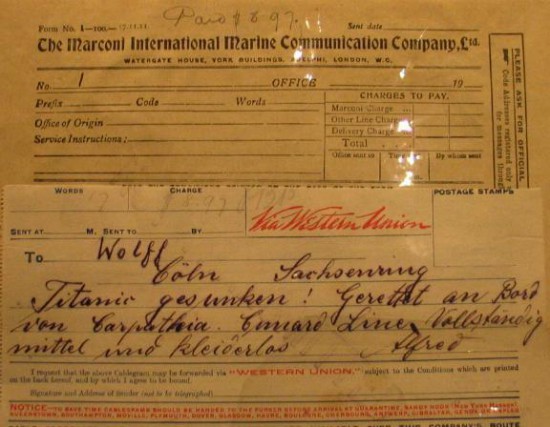 Paid $8 97.
Form No. 1—100.— 17.11.11. Sent date
The Marconi International Marine Communication Company, Ltd.
WATERGATE HOUSE, YORK BUILDINGS, ADELPHI, LONDON, W.C.
No 1 OFFICE 19
Prefix Code Words
CHARGES TO PAY.
Marconi Charge
Office of Origin
Other Line Charge
Delivery Charge
Service Instructions:
Total
Office sent to Time By whom sent
PLEASE ASK FOR OFFICIAL
Code Addresses registered only
for messages through
WORDS CHARGE
POSTAGE STAMPS
Via Western Union
SENT AT M. SENT TO BY
To Wolff
Cöln Sachsenring
Titanic gesunken! Gerettet an Bord
von Carpathia. Cunard Line. Vollständig
mittel und kleiderlos Alfred
I request that the above Cablegram may be forwarded via "WESTERN UNION," subject to the Conditions which are printed
on the back hereof, and by which I agree to be bound.
Signature and Address of Sender (not to be telegraphed)
NOTICE—TO SAVE TIME CABLEGRAMS SHOULD BE HANDED TO THE PURSER BEFORE ARRIVAL AT QUARANTINE, SANDY HOOK
QUEENSTOWN, SOUTHAMPTON, MOVILLE, PLYMOUTH, DOVER, GLASGOW, HAVRE, BOULOGNE, CHERBOURG, ANTWERP, GIBRALTAR, GENOA OR NAPLES
COMPANY'S ROUTE